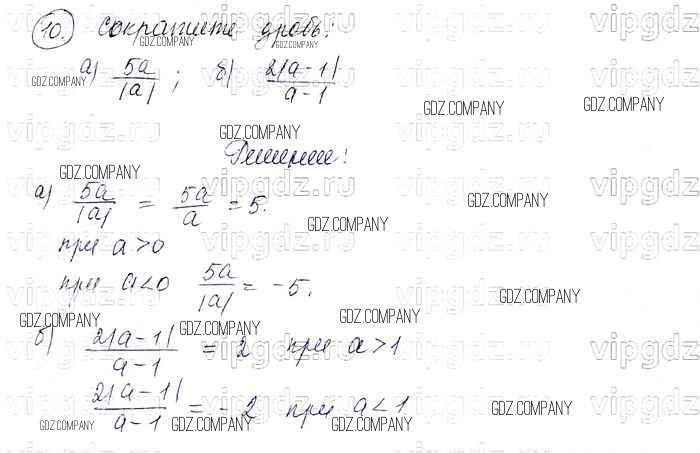 10. Сократите дробь:
а) 5a/|a| ; б) 2|a-1|/a-1
Решение:
а) 5a/|a| = 5a/a = 5.
при a>0
при a<0 5a/|a| = -5.
б) 2|a-1|/a-1 = 2 при a>1
2|a-1|/a-1 = -2 при a<1
vipgdz.ru
GDZ.COMPANY